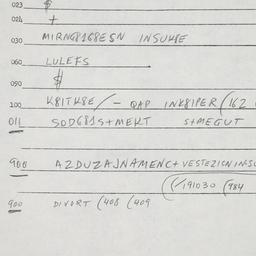 023 $
024 +
030 MIRNG8168ESN INSUK8E
060 LULEFS
090 $
100 K8ITK8E/- QAP INK8IPER (162
011 SODG81S+MEKT S+MEGUT
900 AZDUZAJNAMENC+VESTEZICNINSU
(/191030 (984
900 DIVORT (408 (409